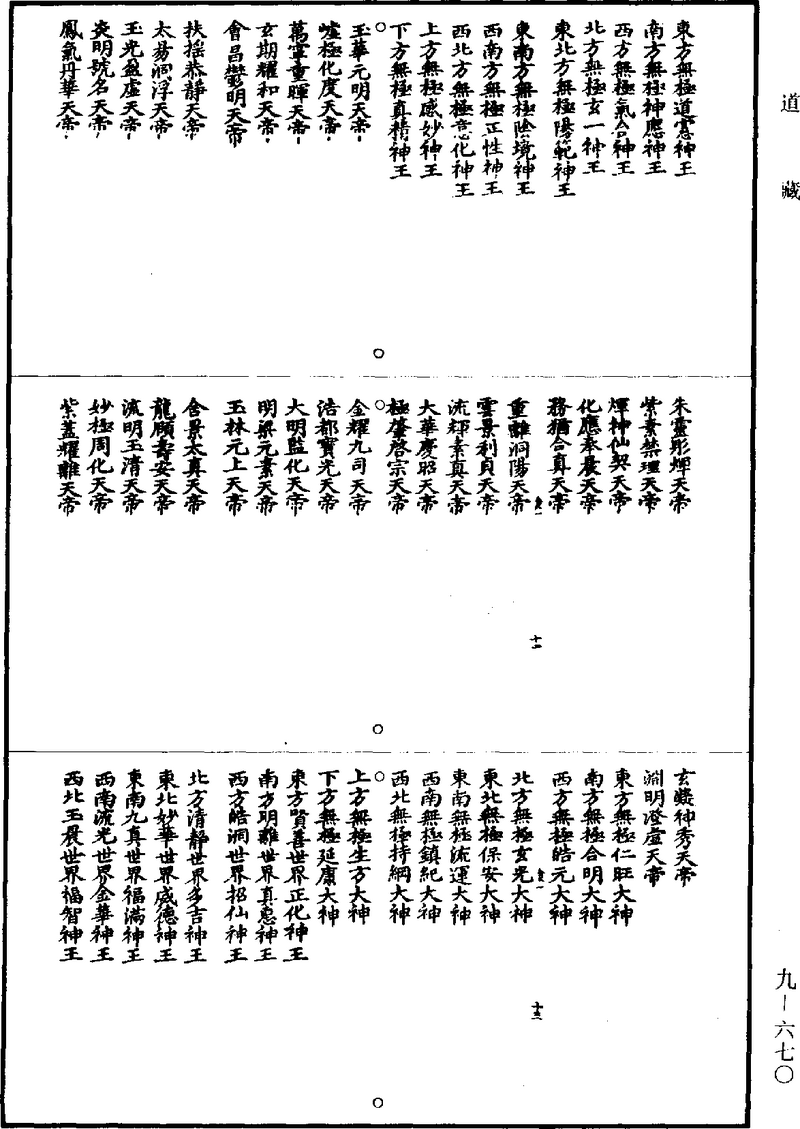 道藏
東方無極道寔神王
南方無極神應神王
西方無極氣合神王
北方無極玄一神王
東北方無極陽範神王
東南方無極陰境神王
西南方無極正性神王
西北方無極意化神王
上方無極感妙神王
下方無極真精神王
○
玉華元明天帝
爐極化度天帝
萬寧重暉天帝
玄期耀和天帝
會昌鬱明天帝
扶搖恭靜天帝
太易洞浮天帝
玉光盈虛天帝
炎明號名天帝
鳳氣丹華天帝
○
朱靈彤煇天帝
紫素禁理天帝
煇神仙契天帝
化應奉晨天帝
務猶合真天帝
卷一
十二
重離洞陽天帝
雲景利貞天帝
流輝素真天帝
大華慶昭天帝
極肇啓宗天帝
○
金耀九司天帝
浩都寶光天帝
大明監化天帝
明梁元素天帝
玉林元上天帝
含景太真天帝
龍願壽安天帝
流明玉清天帝
妙極周化天帝
紫蓋耀離天帝
○
玄凝神秀天帝
淵明澄虛天帝
東方無極仁旺大神
南方無極合明大神
西方無極皓元大神
卷一
十三
北方無極玄光大神
東北無極保安大神
東南無極流運大神
西南無極鎮紀大神
西北無極持綱大神
○
上方無極生方大神
下方無極延康大神
東方賢善世界正化神王
南方明離世界真惠神王
西方皓洞世界招仙神王
北方清靜世界多吉神王
東北妙華世界威德神王
東南九真世界福滿神王
西南流光世界金華神王
西北玉晨世界福智神王
○
九－六七〇